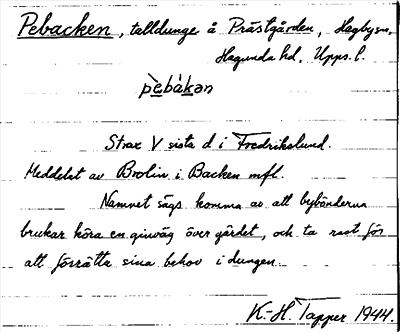 Pebacken, talldunge å Prästgården, Hagbysn,
Hagunda hd, Upps. l.
pèbákan
Strax V sista d i Fredrikslund.
Meddelat av Brolin i Backen mfl.
Namnet sägs komma av att bybönderna
brukar köra en ginväg över gärdet, och ta rast för
att förrätta sina behov i dungen.
K.-H. Tapper 1944.